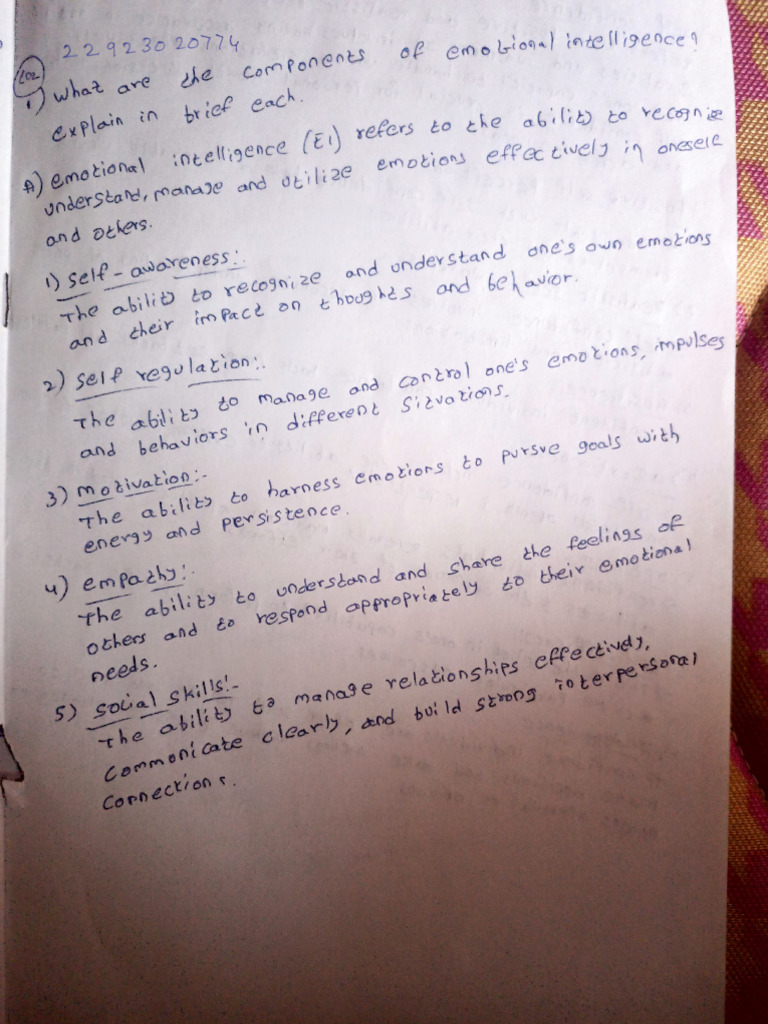 22923020774
202
1) what are the components of emotional intelligence?
explain in brief each.
A) emotional intelligence (EI) refers to the ability to recognize
understand, manage and utilize emotions effectively in oneself
and others.
1) self-awareness:-
The ability to recognize and understand one's own emotions
and their impact on thoughts and behavior.
2) self regulation:-
The ability to manage and control one's emotions, impulses
and behaviors in different situations.
3) motivation:-
The ability to harness emotions to pursue goals with
energy and persistence.
4) empathy:-
The ability to understand and share the feelings of
others and to respond appropriately to their emotional
needs.
5) social skills:-
The ability to manage relationships effectively,
communicate clearly, and build strong interpersonal
connections.